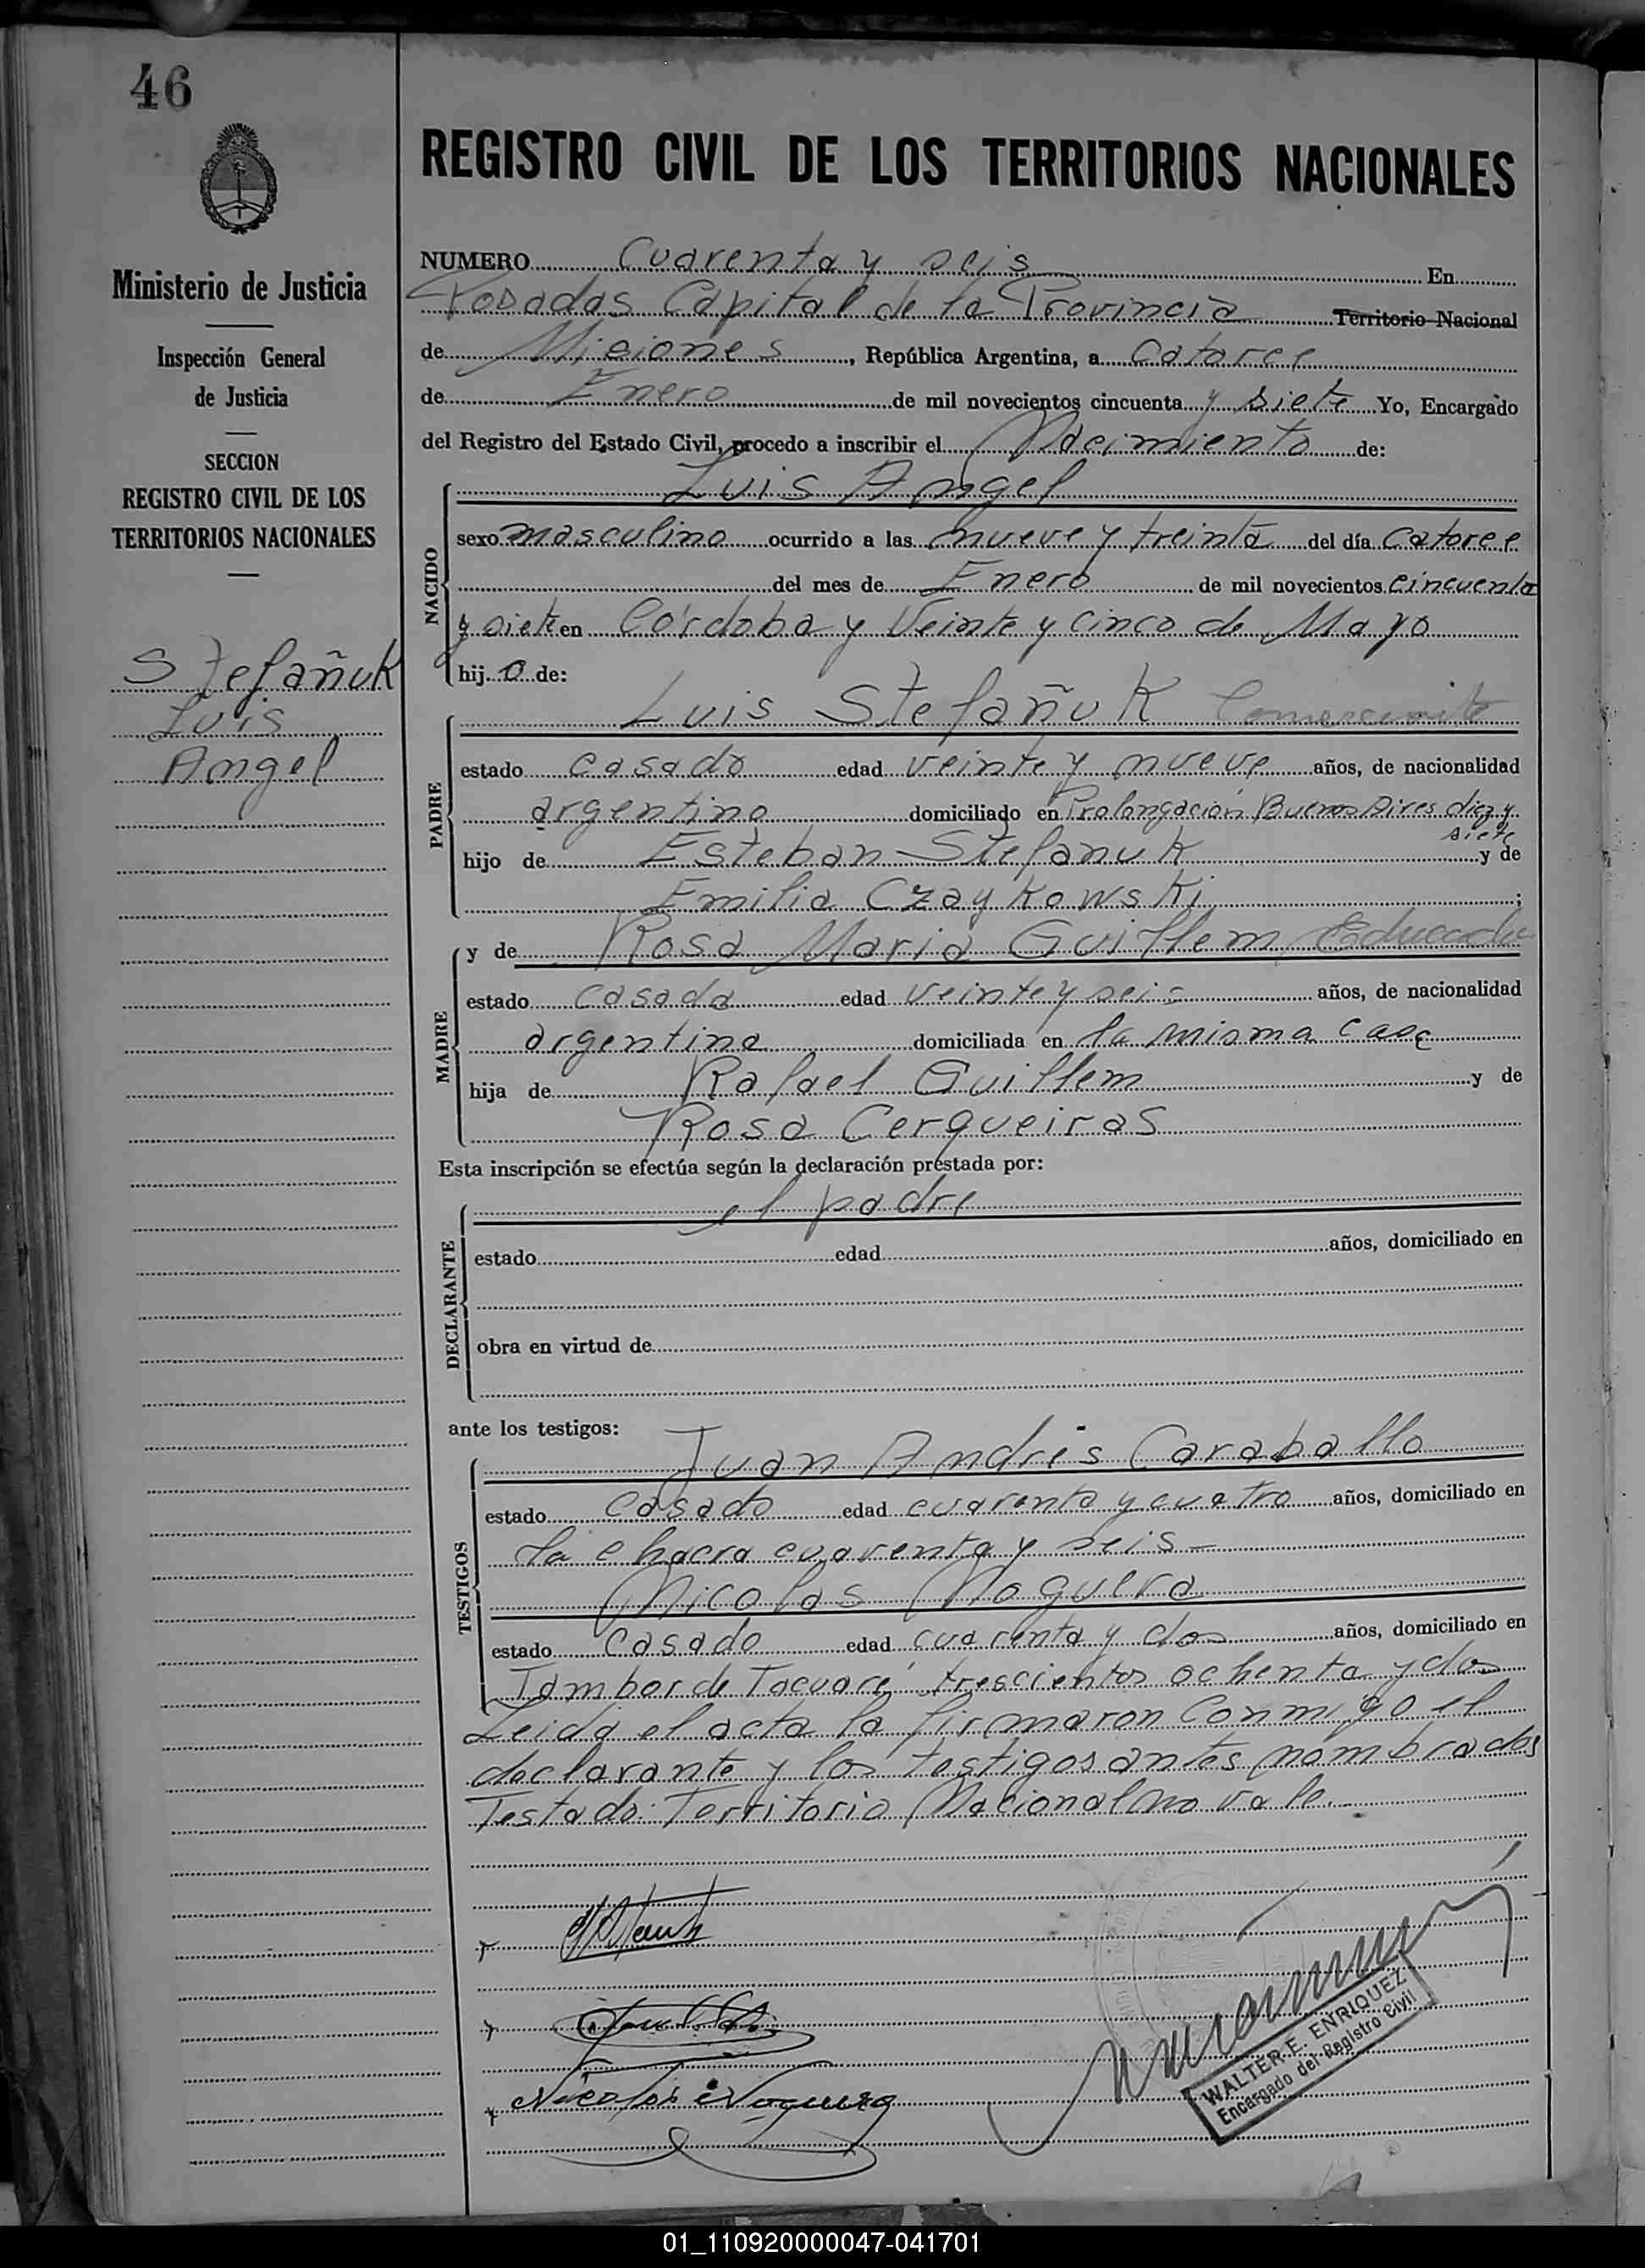 46
Ministerio de Justicia
Inspección General
de Justicia
SECCION
REGISTRO CIVIL DE LOS
TERRITORIOS NACIONALES
Stefañuk
Luis
Angel
REGISTRO CIVIL DE LOS TERRITORIOS NACIONALES
NUMERO Cuarenta y seis En
Posadas Capital de la Provincia Territorio Nacional
de Misiones, República Argentina, a Catorce
de Enero de mil novecientos cincuenta y siete Yo, Encargado
del Registro del Estado Civil, procedo a inscribir el Nacimiento de:
NACIDO
Luis Angel
sexo masculino ocurrido a las nueve y treinta del día catorce
del mes de Enero de mil novecientos cincuenta
y siete en Córdoba y Veinte y cinco de Mayo
hijo de:
PADRE
Luis Stefañuk Comerciante
estado casado edad veinte y nueve años, de nacionalidad
argentino domiciliado en Prolongación Buenos Aires diez y
siete
hijo de Esteban Stefanuk y de
Emilia Czaykowski;
MADRE
y de Rosa Maria Guillem
estado casada edad veinte y seis años, de nacionalidad
argentina domiciliada en la misma casa
hija de Rafael Guillem y de
Rosa Cerqueiras
Esta inscripción se efectúa según la declaración prestada por:
DECLARANTE
el padre
estado edad años, domiciliado en
obra en virtud de
ante los testigos:
TESTIGOS
Juan Andrés Caraballo
estado casado edad cuarenta y cuatro años, domiciliado en
la chacra cuarenta y seis
Nicolas Noguera
estado casado edad cuarenta y dos años, domiciliado en
Tambor de Tacuarí trescientos ochenta y dos
Leida el acta la firmaron conmigo el
declarante y los testigos antes nombrados
Testado: Territorio Nacional no vale.
Nicolas Noguera
WALTER E. ENRIQUEZ
Encargado del Registro Civil
01_110920000047-041701